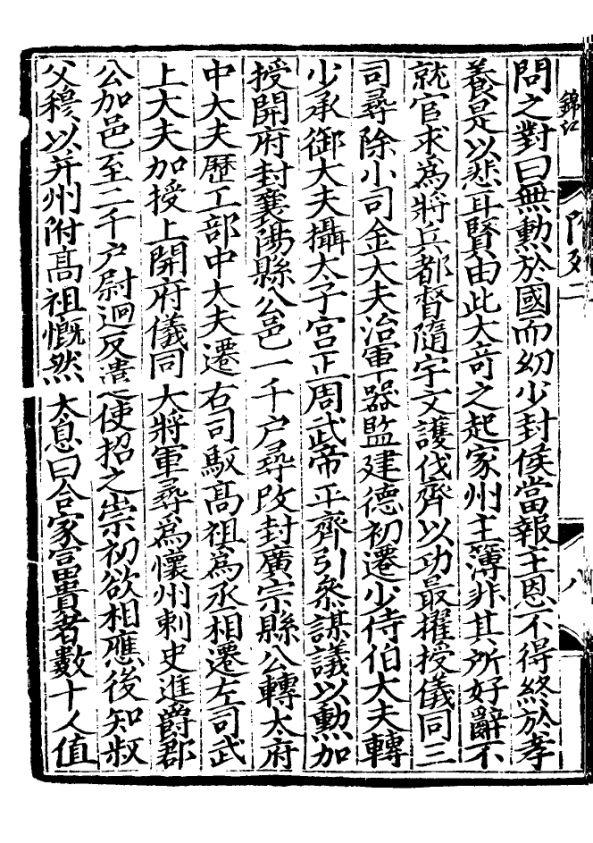 錦江
列二
八
問之對曰無勲於國而幼少封侯當報主恩不得終於孝
養是以悲耳賢由此大竒之起家州主簿非其所好辭不
就官求爲將兵都督隨宇文護伐齊以功最擢授儀同三
司尋除小司金大夫治軍器監建德初遷少侍伯大夫轉
少承御大夫攝太子宫正周武帝平齊引叅謀議以勲加
授開府封襄陽縣公邑一千户尋改封廣宗縣公轉太府
中大夫歷工部中大夫遷右司馭髙祖爲丞相遷左司武
上大夫加授上開府儀同大將軍尋爲懷州刺史進爵郡
公加邑至二千户尉迥反遣使招之崇初欲相應後知叔
父穆以并州附髙祖慨然太息曰合家富貴者數十人值